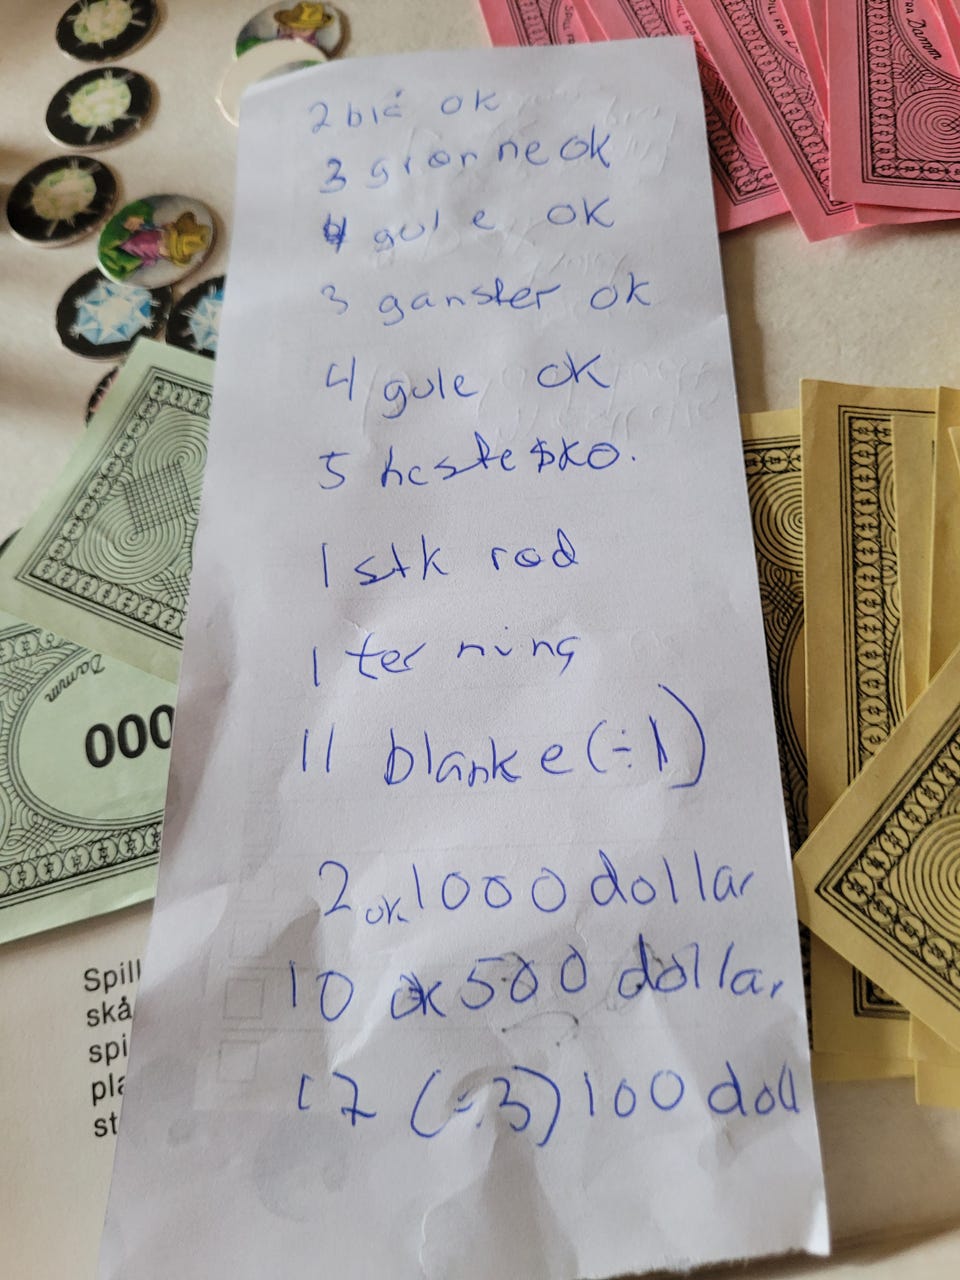 SPILL FRA Damm
2 blå ok
3 grønne ok
4 gule ok
3 ganster ok
4 gule ok
5 hestesko.
1 stk rød
1 terning
11 blanke (÷1)
2 ok 1000 dollar
10 ok 500 dollar
17 (÷3) 100 doll
Damm
000
Spill
skå
spi
pla
st